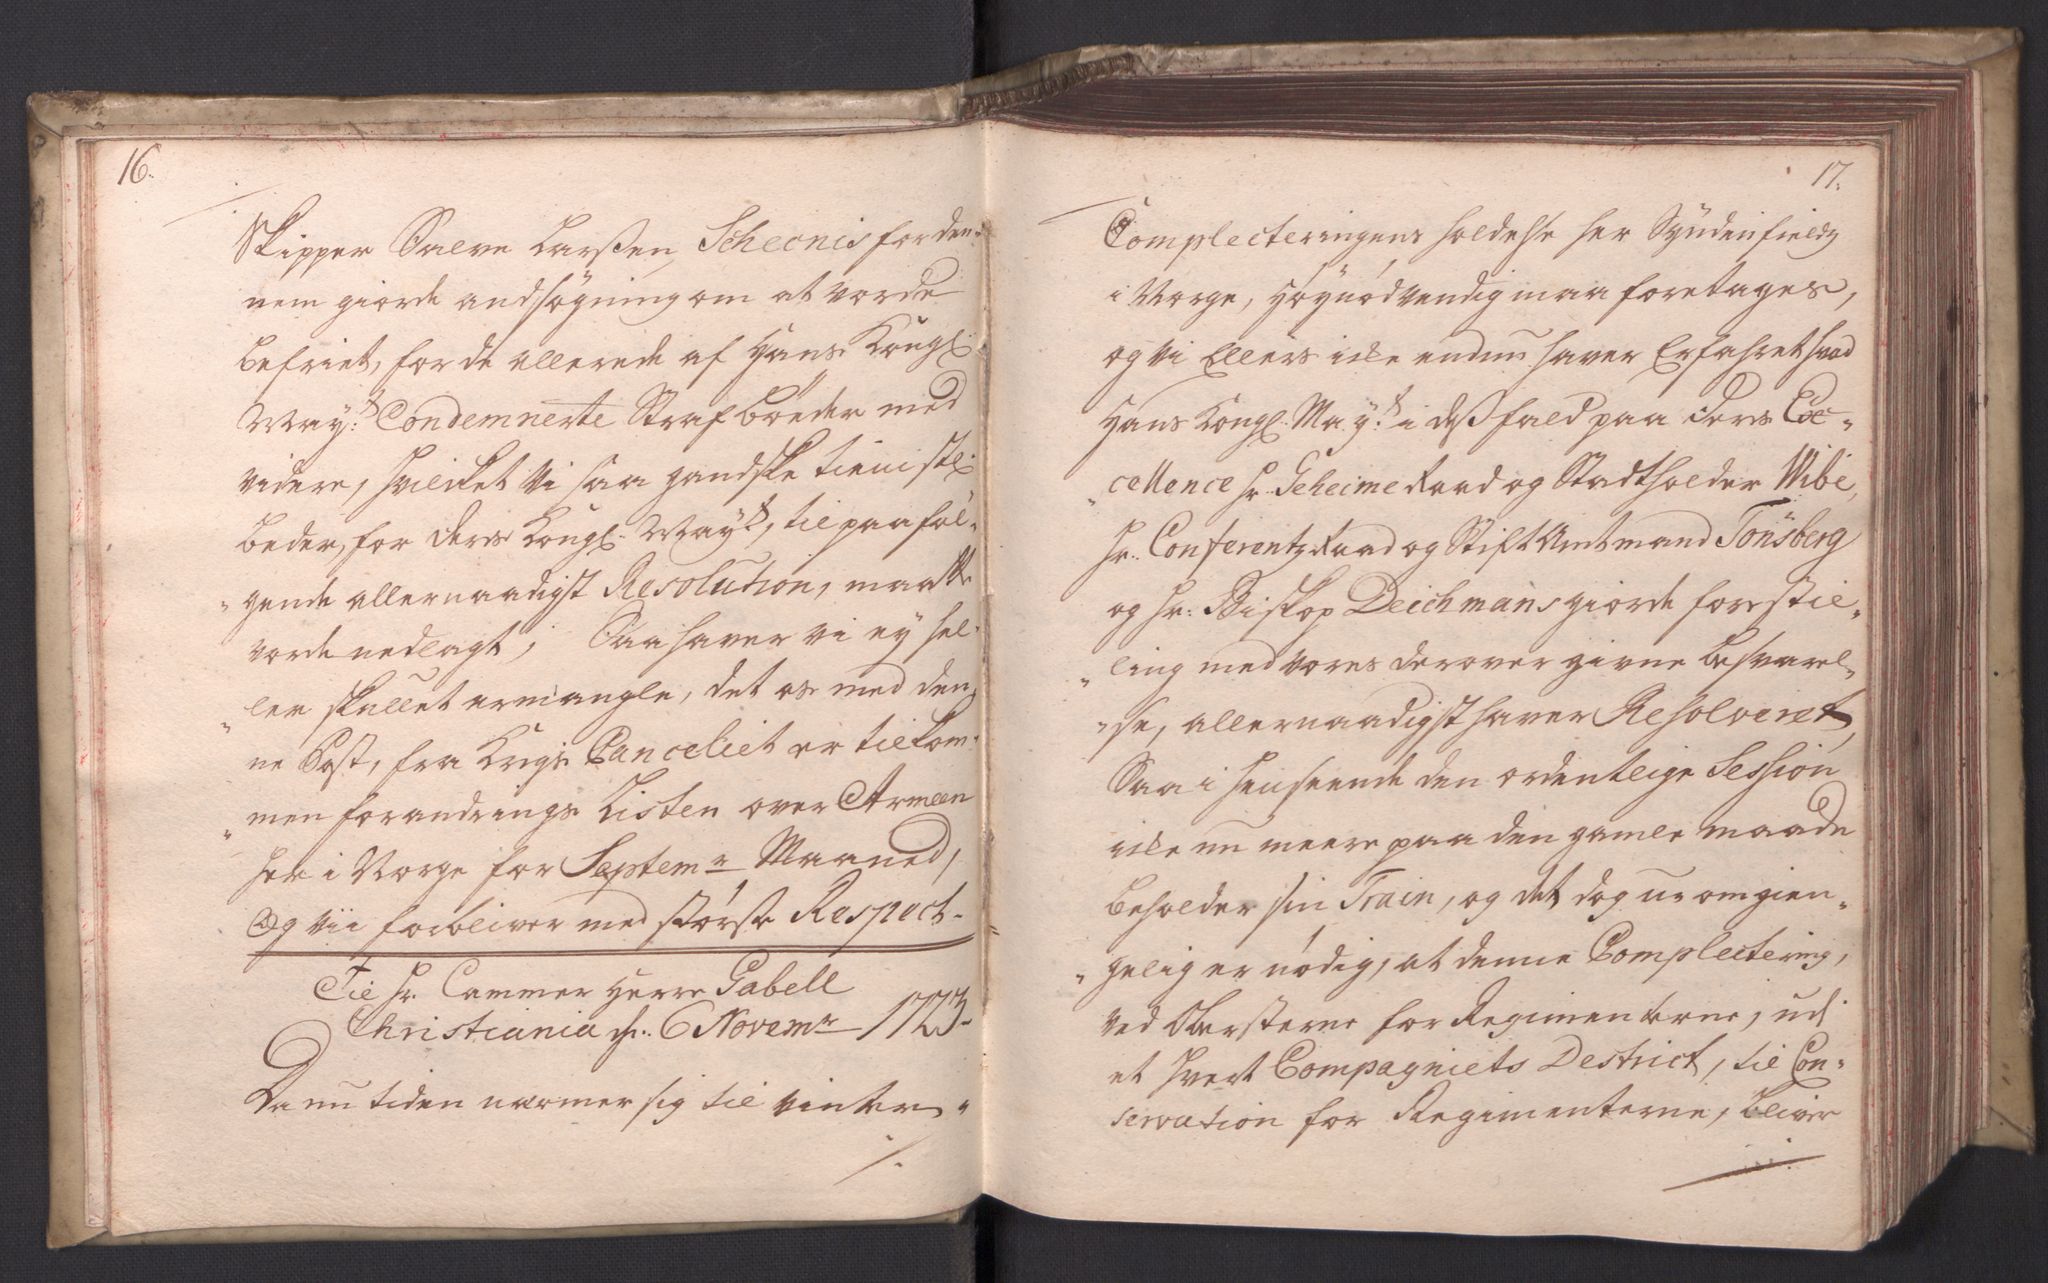 16.
Skipper Salve Larßen, Scheonis for den-
nem giorde andsøgning om at vorde
befriet, for de allerede af Hans Kongl:
May:t Condemnerte Straf bøeder med
videre, hvilcket Vi saa gandske tienistl:
beder, for Deris Kongl. May:t, til paaføl-
gende allernaadigst Resolution, maatte
vorde nedlagt; Saa haver vi ey hel-
ler skullet ermangle, det os med den-
ne Post, fra Krigs Canceliet er tilkom-
men forandrings Listen over Armeen
her i Norge for Septemr Maaned,
Og vii forbliver med største Respect-
Til Hr. Cammer Herre Gabell
Christiania d. 6 Novemr 1723.
Da nu tiden nærmer sig til vinter-
17.
Complecteringens holdelse her Syndenfields
i Norge, høynødvendig maa foretages,
og vi Ellers icke endnu haver Erfahret hvad
Hans Kongl. May:t i desß fald paa Deris Ex-
cellence Hr. Geheime Raad og Stadtholder Wibe,
Hr. Conferentz Raad og Stift Amtmand Tönsberg
og Hr. Biskop Deichmans giorde forestil-
ling med vores derover givne besvarel-
se, allernaadigst haver Resolveret,
Saa i henseende den ordentlige Session
icke nu meere paa den gamle maade
beholder sin Train, og det dog uomgien-
gelig er nödig, at denne Complectering,
ved Obersterne for Regimenterne, udi
et hvert Compagniets District, til Con-
servation for Regimenterne, bliver